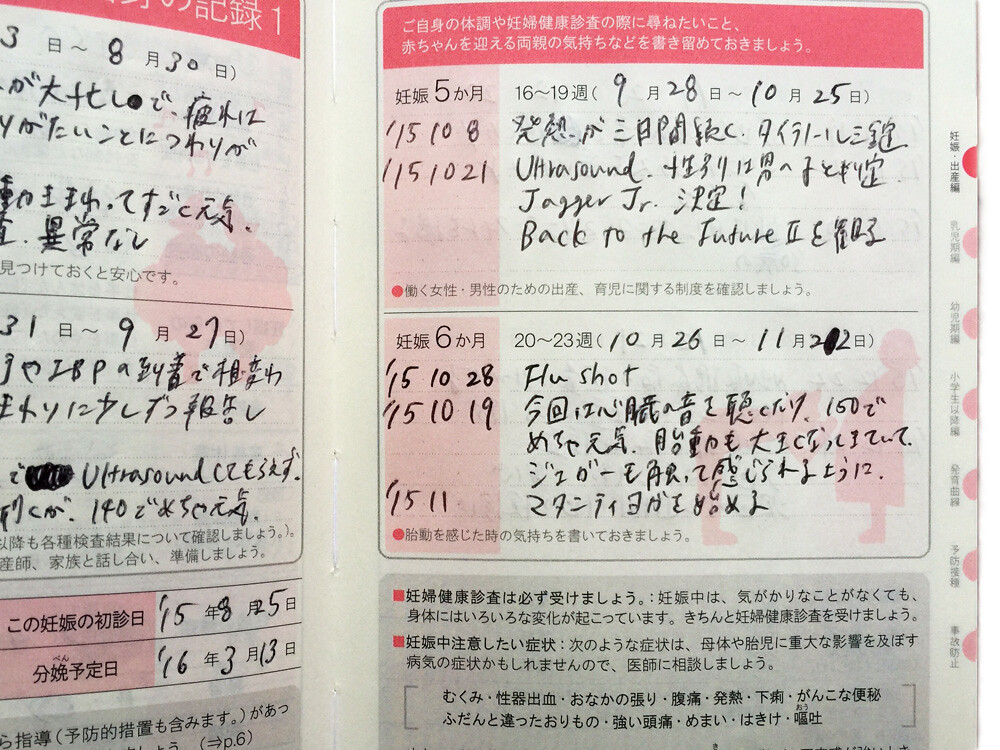 身の記録 1
3 日～8月30日)
が大忙しで、疲れは
りがたいことにつわりが
動も伝わってすごく元気。
査、異常なし
見つけておくと安心です。
31 日～9月27日)
やIBPの到着で相変わ
まわりに少しずつ報告し
で Ultrasoundしてもらえず。
聞くが、140でめちゃ元気。
以降も各種検査結果について確認しましょう。)。
産師、家族と話し合い、準備しましょう。
この妊娠の初診日 '15年8月25日
分娩予定日 '16年3月13日
べん
ら指導(予防的措置も含みます。)があっ
しましょう。 (⇒p.6)
ご自身の体調や妊婦健康診査の際に尋ねたいこと、
赤ちゃんを迎える両親の気持ちなどを書き留めておきましょう。
妊娠5か月 16～19週(9月28日～10月25日)
'15 10 8 発熱が三日間続く。タイラノール三錠
'15 10 21 Ultrasound. 性別は男の子と判定.
Jagger Jr. 決定!
Back to the Future IIを観る
●働く女性・男性のための出産、育児に関する制度を確認しましょう。
妊娠6か月 20～23週(10月26日～11月22日)
'15 10 28 Flu shot
'15 10 19 今回は心臓の音を聴くだけ。150で
めちゃ元気。胎動も大きくなってきていて、
ジャガーも触って感じられるように。
'15 11 マタニティヨガを始める
●胎動を感じた時の気持ちを書いておきましょう。
■妊婦健康診査は必ず受けましょう。:妊娠中は、気がかりなことがなくても、
身体にはいろいろな変化が起こっています。きちんと妊婦健康診査を受けましょう。
■妊娠中注意したい症状:次のような症状は、母体や胎児に重大な影響を及ぼす
病気の症状かもしれませんので、医師に相談しましょう。
むくみ・性器出血・おなかの張り・腹痛・発熱・下痢・がんこな便秘
ふだんと違ったおりもの・強い頭痛・めまい・はきけ・嘔吐
おう
妊娠・出産編
乳児期編
幼児期編
小学生以降編
発育曲線
予防接種
事故防止